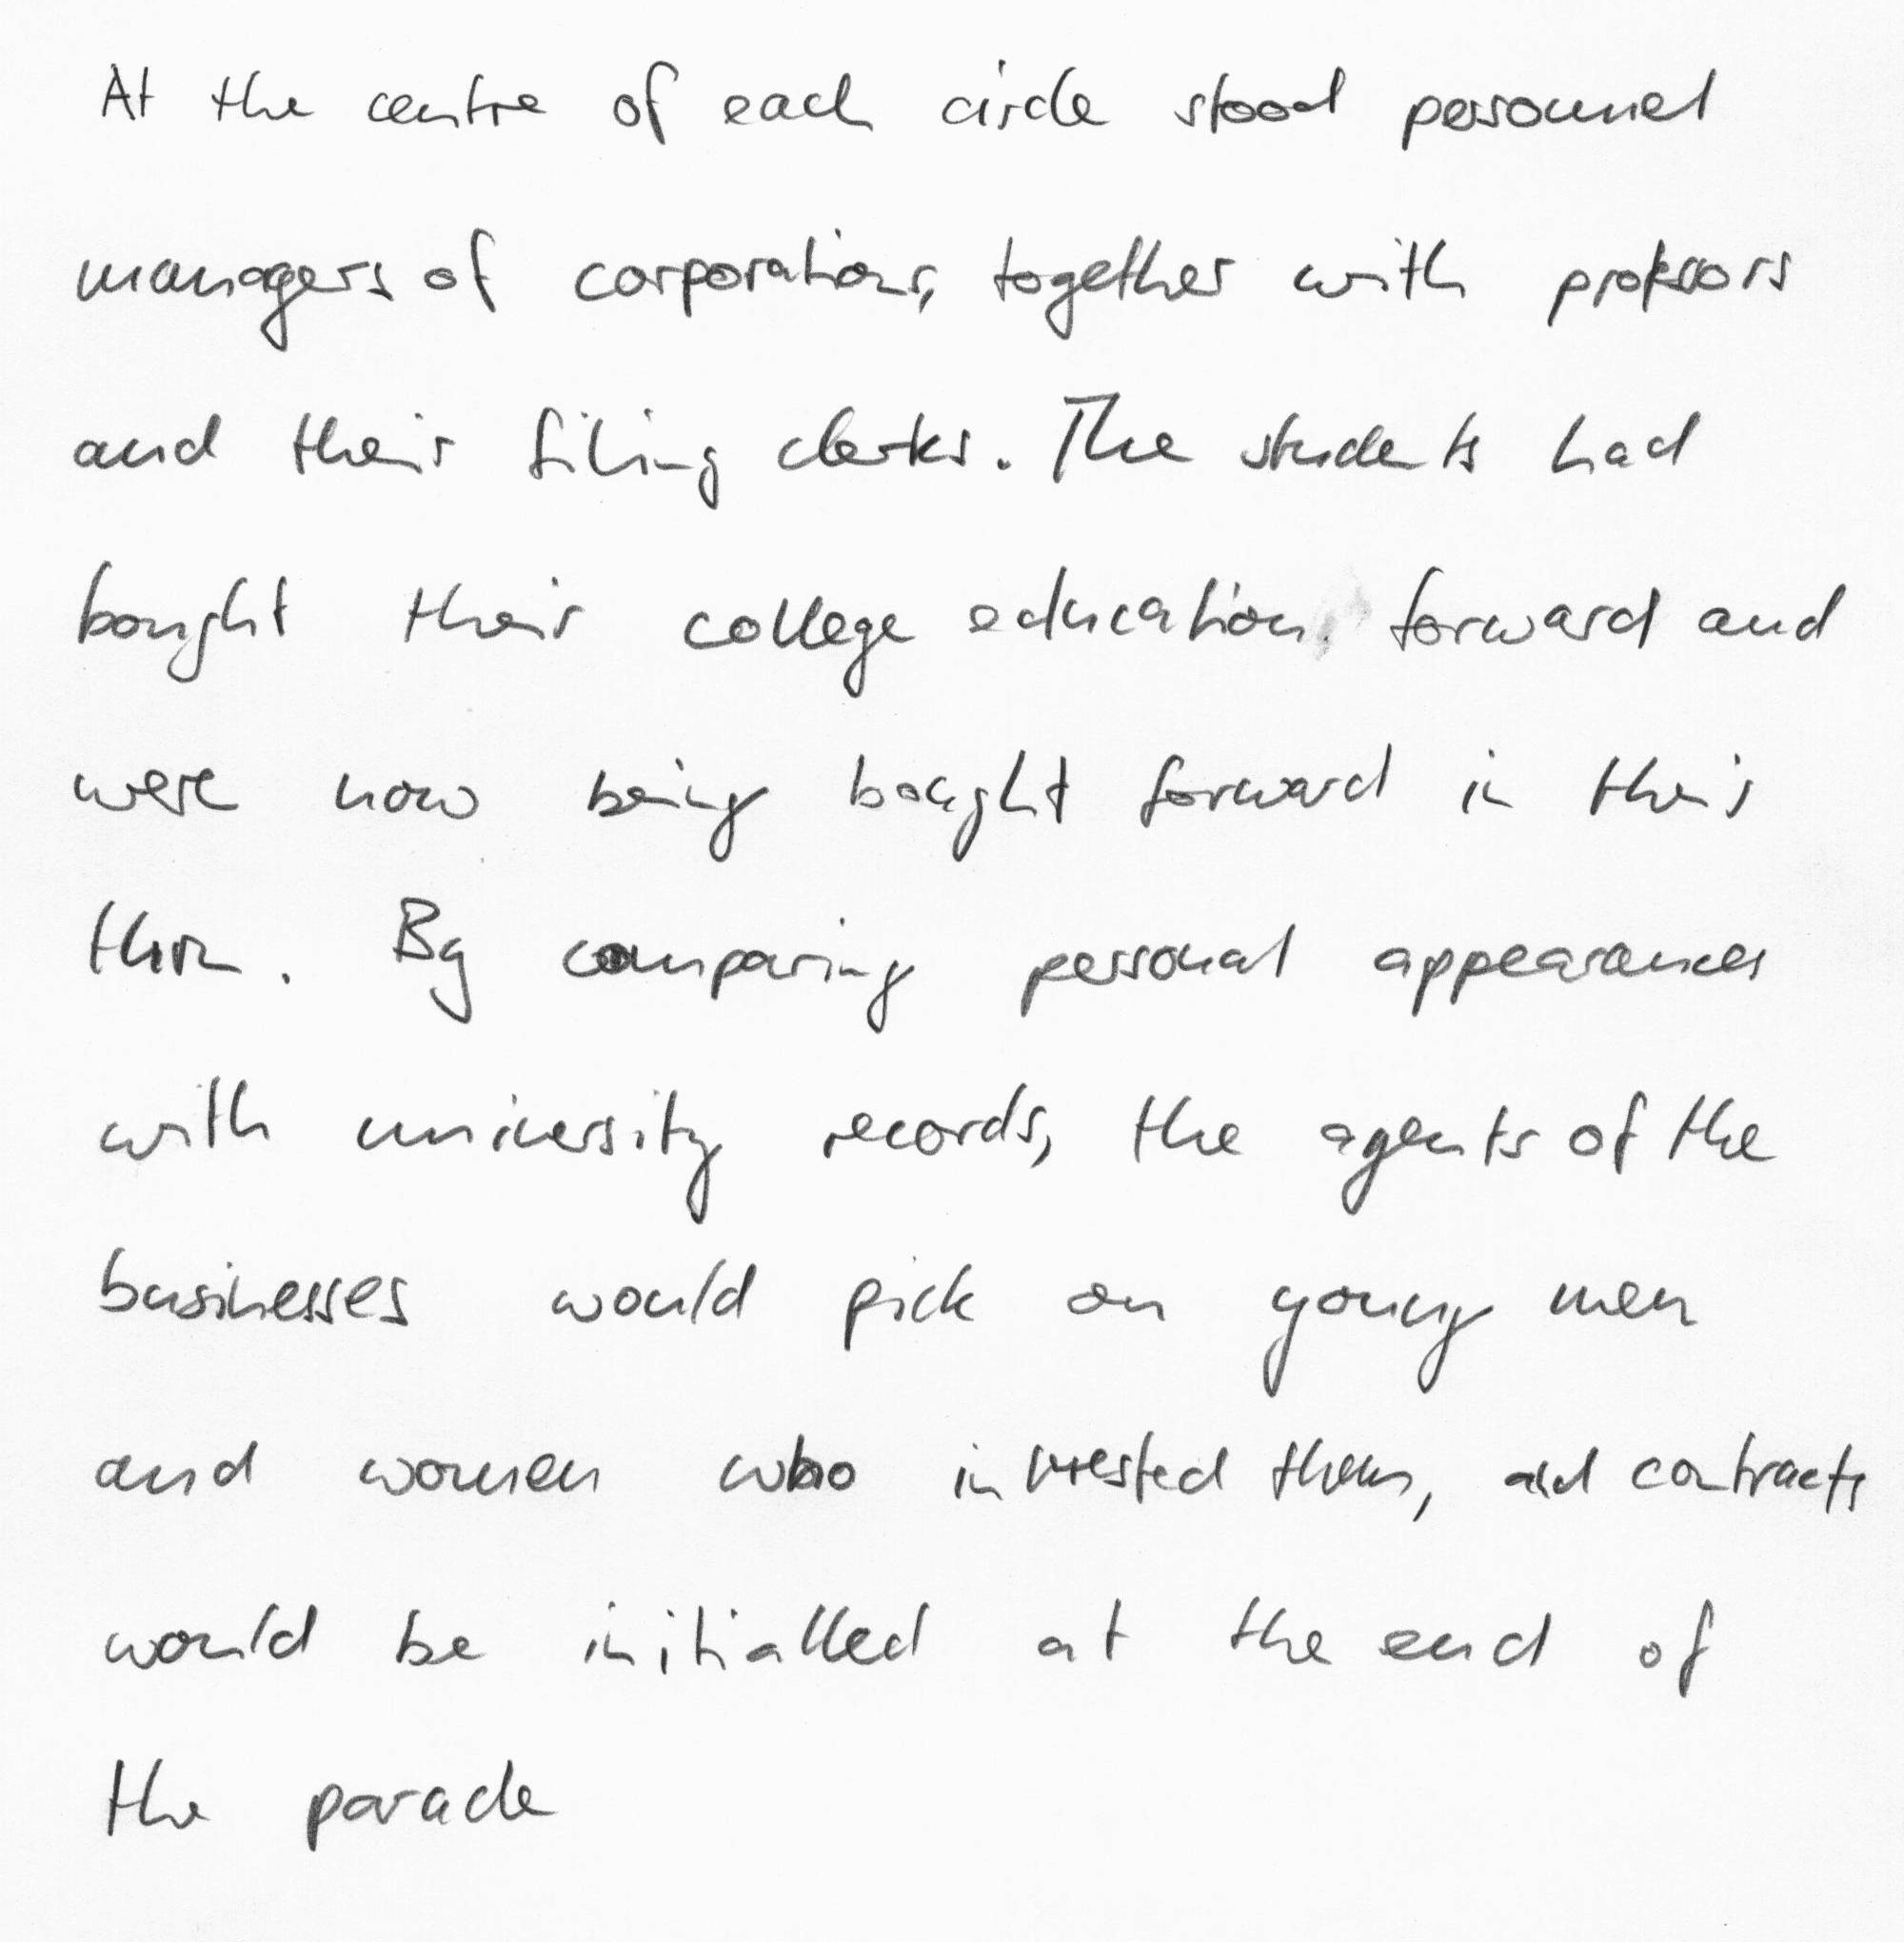 At the centre of each circle stood personnel
managers of corporations, together with professors
and their filing clerks. The students had
bought their college education forward and
were now being bought forward in their
turn. By comparing personal appearances
with university records, the agents of the
businesses would pick on young men
and women who interested them, and contracts
would be initialled at the end of
the parade